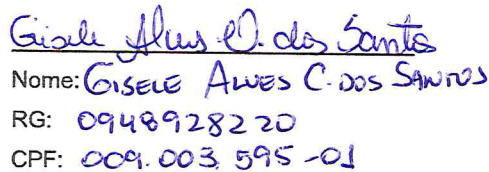 Gisele Alves C. dos Santos
Nome: GISELE ALVES C. DOS SANTOS
RG: 0948928220
CPF: 009.003.595-01